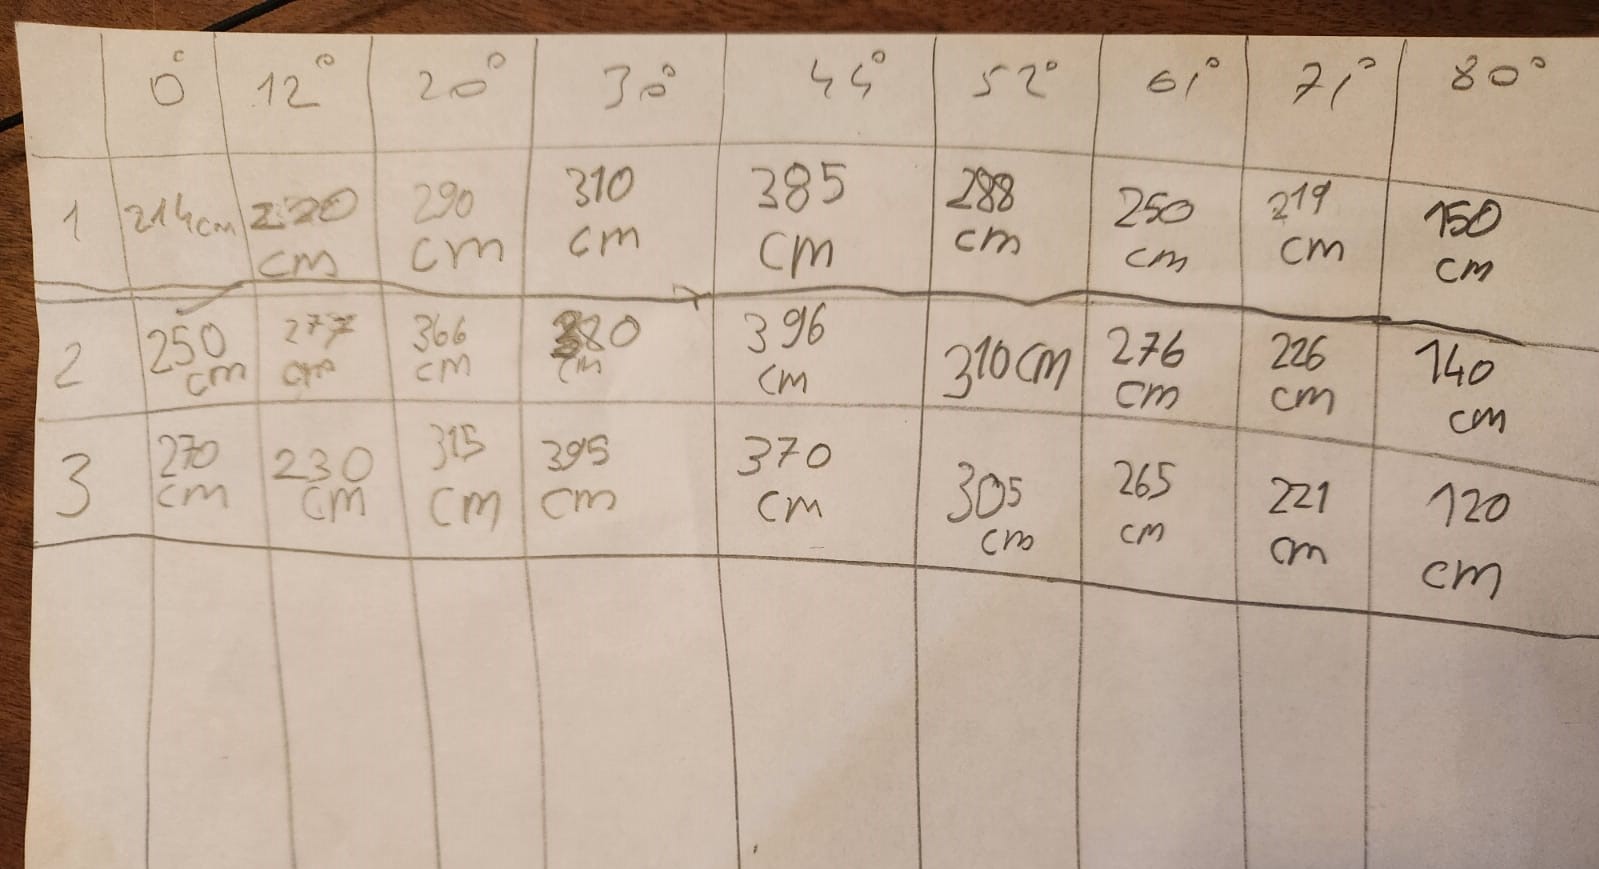 0° 12° 20° 30° 44° 52° 61° 71° 80°
1 214cm 220 cm 290 cm 310 cm 385 cm 288 cm 250 cm 219 cm 150 cm
2 250 cm 277 cm 366 cm cm 396 cm 310cm 276 cm 226 cm 140 cm
3 270 cm 230 cm 315 cm 395 cm 370 cm 305 cm 265 cm 221 cm 120 cm